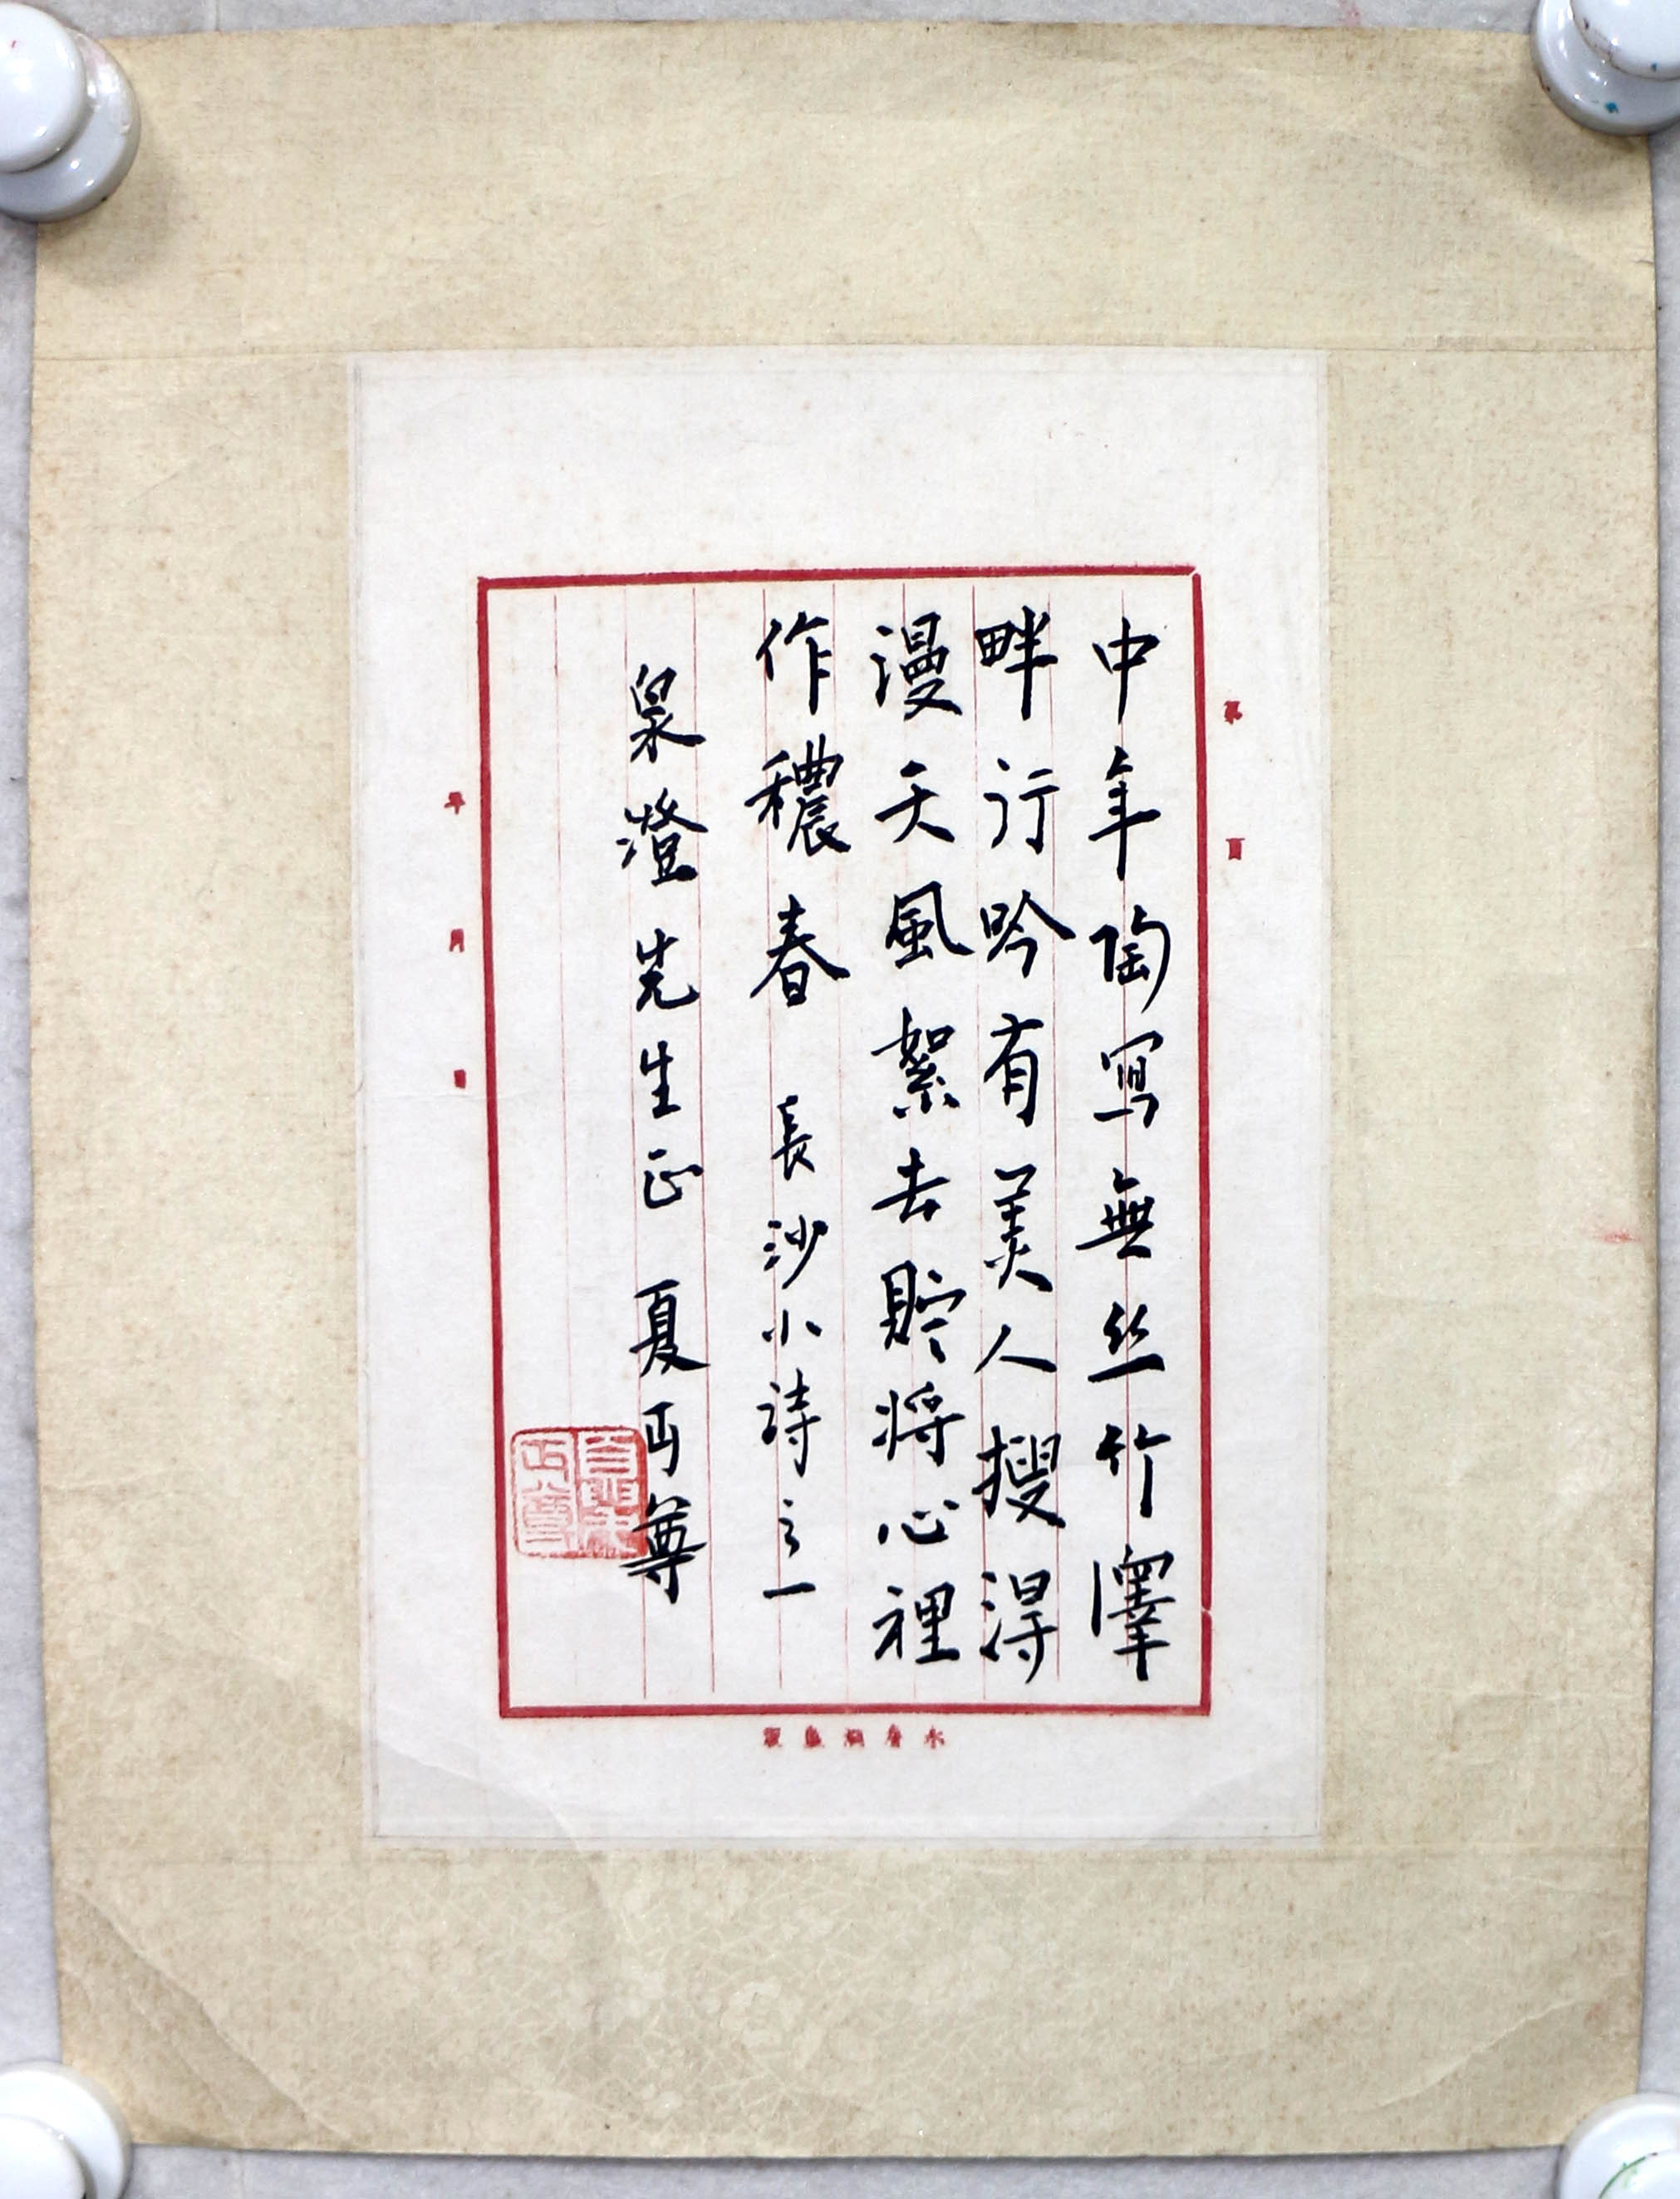 中年陶寫無絲竹澤
畔行吟有美人搜得
漫天風絮去貯將心裡
作穠春 長沙小詩之一
泉澄先生正 夏丏尊
年
月
日
第
頁